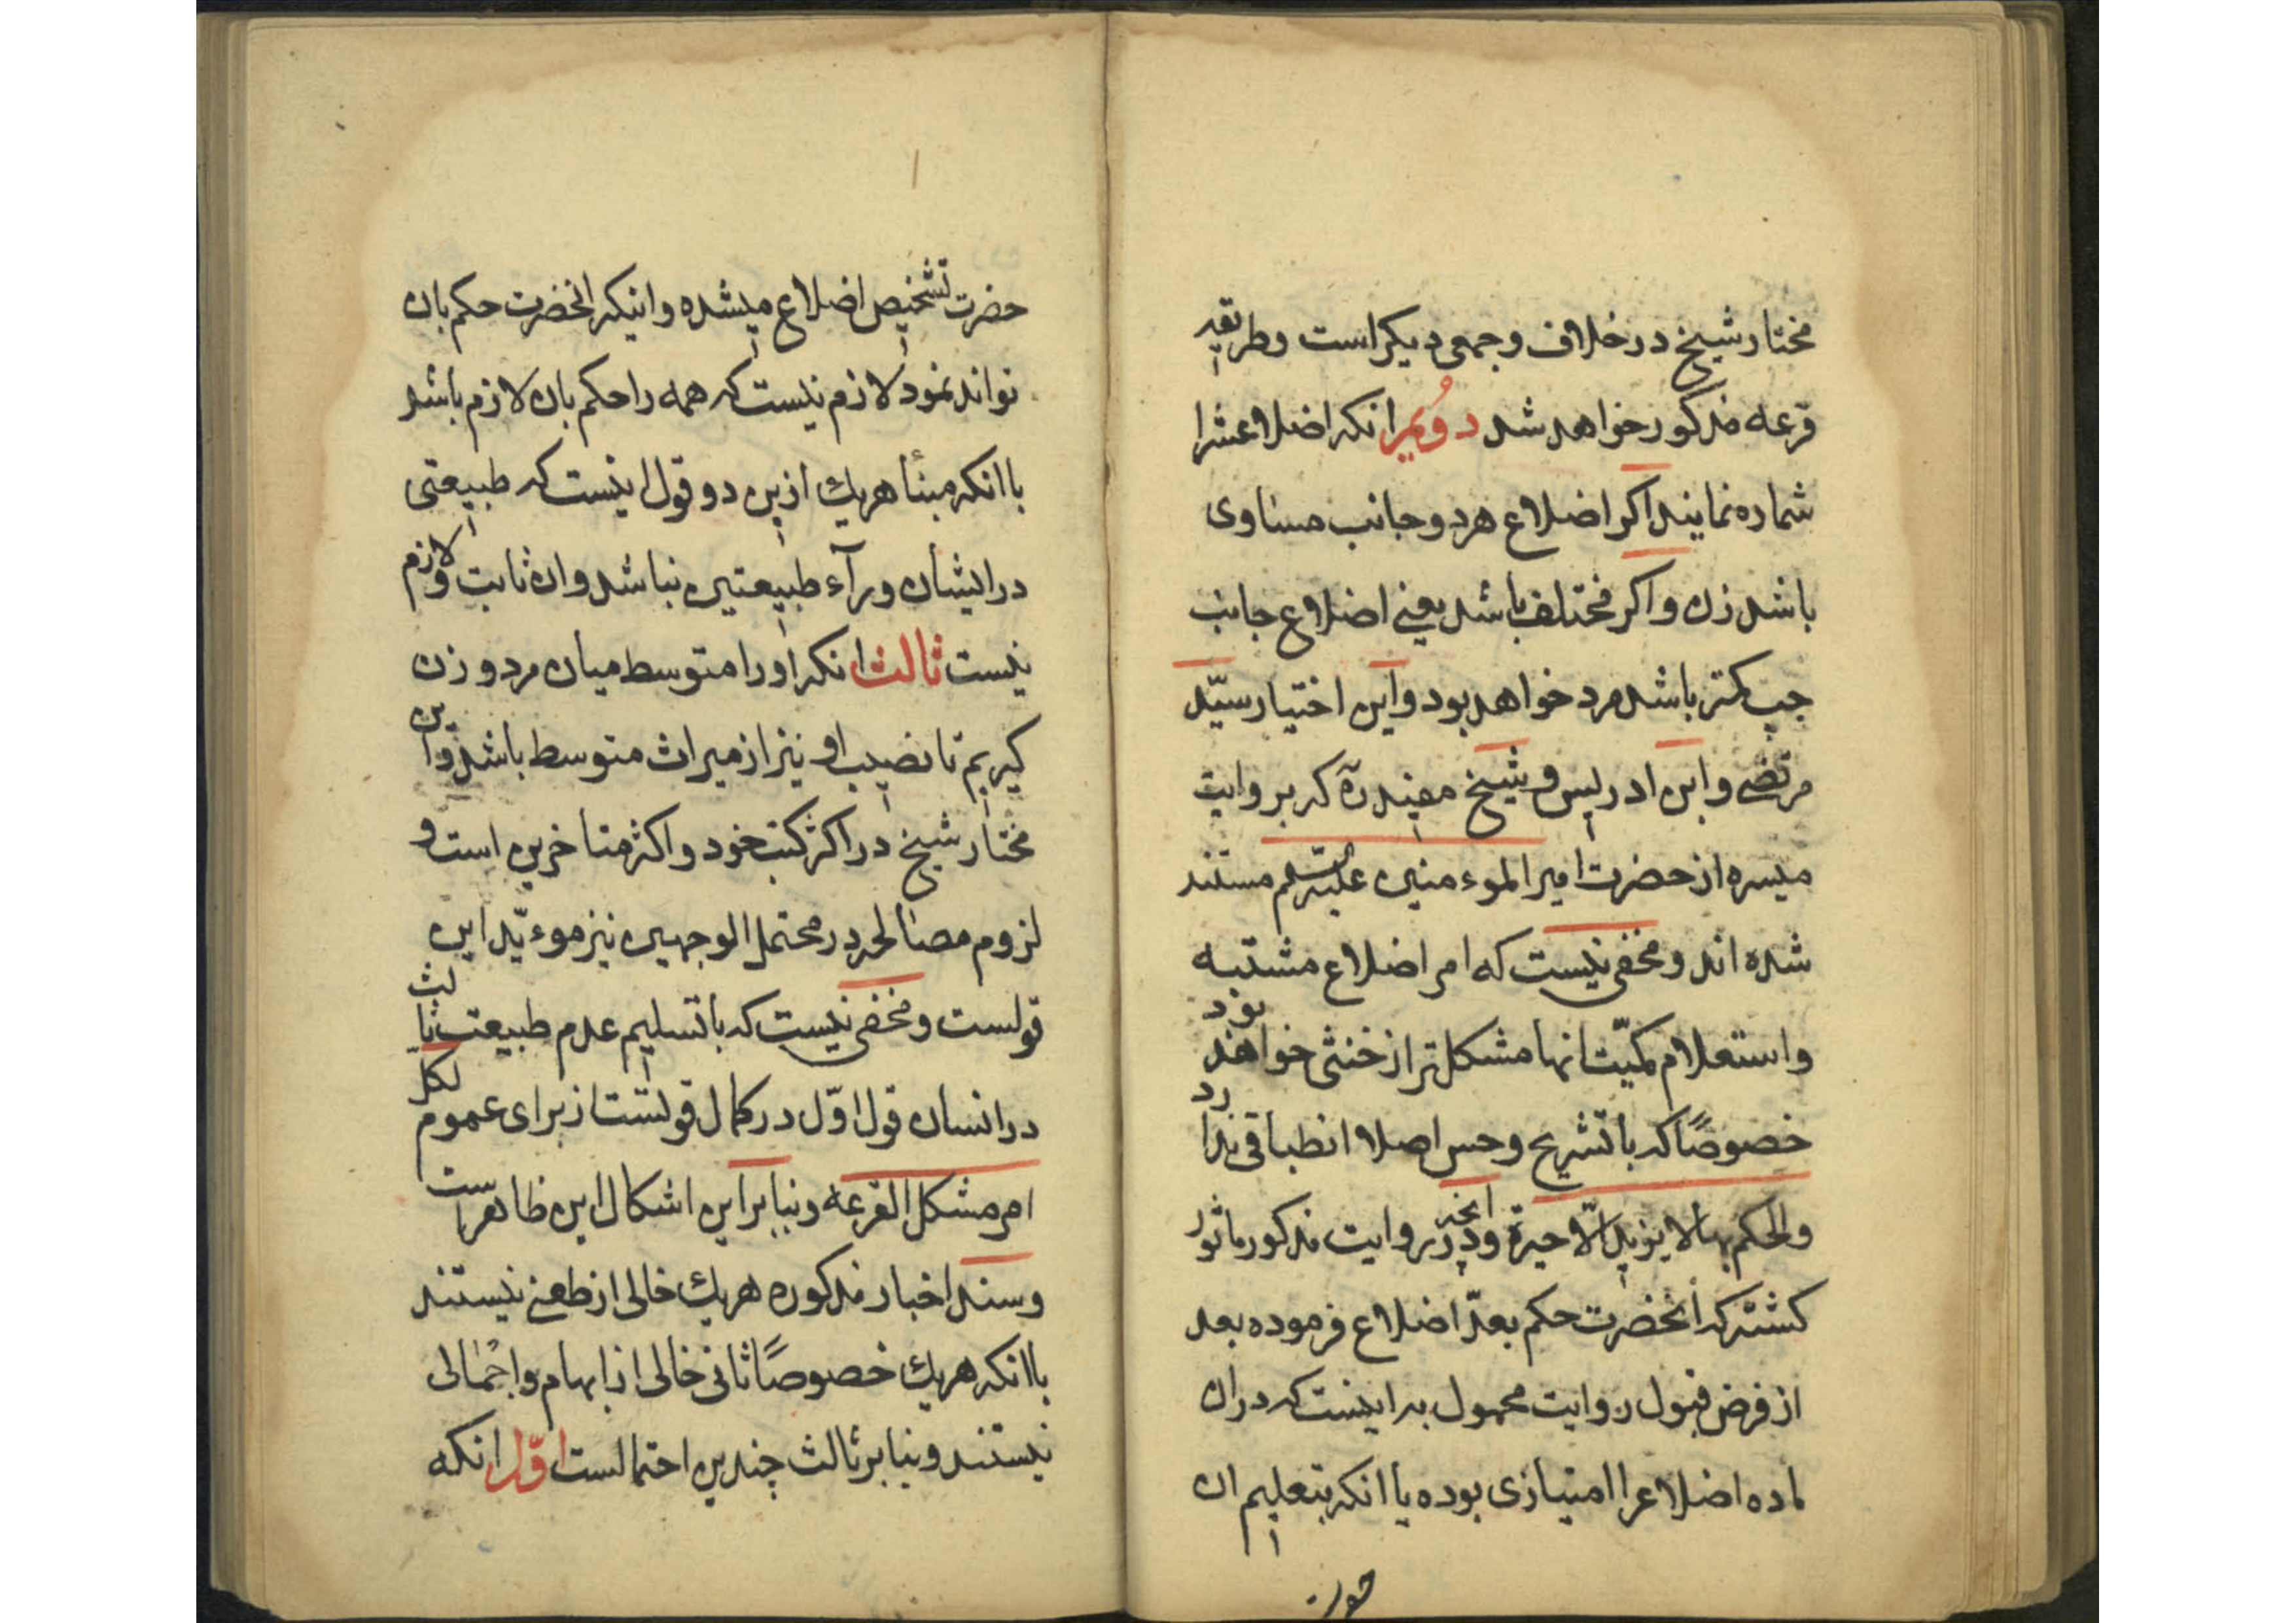 مختار شیخ در خلاف و جمعی دیکر است و طریقه
قرعه مذکور خواهد شد دویم انکه اضلاعش را
شماره نمایند اکر اضلاع هر دو جانب مساوی
باشد زن و اکر مختلف باشد یعنی اضلاع جانب
چپ کمتر باشد مرد خواهد بود و این اختیار سیّد
مرتضی و ابن ادریس و شیخ مفید ره که بروایت
میسره از حضرت امیر الموءمنین علیه السلم مستند
شده اند و مخفی نیست که امر اضلاع مشتبه
و استعلام کمیّت انها مشکل تر از خنثی خواهند بود
خصوصًا که با تشریح و حس اصلا انطباقی ندارد
و الحکم بها لا یزید الّا حیرة و انچه در روایت مذکور ماثور
کشته که انحضرت حکم بعدّ اضلاع فرموده بعد
از فرض قبول روایت محمول به اینست که در ان
ماده اضلاع را امتیازی بوده یا انکه بتعلیم ان
حضرت
حضرت تشخیص اضلاع میشده و اینکه انحضرت حکم بان
تواند نمود لازم نیست که همه را حکم بان لازم باشد
با انکه مبنأ هریک ازین دو قول اینست که طبیعتی
در ایشان ورآء طبیعتین نباشد و ان ثابت و لازم
نیست ثالث انکه او را متوسط میان مرد و زن
کیریم تا نصیب او نیز از میراث متوسط باشد و این
مختار شیخ در اکثر کتب خود و اکثر متاخرین است و
لزوم مصالحه در محتمل الوجهین نیز موءیّد این
قولست و مخفی نیست که با تسلیم عدم طبیعت ثالث
در انسان قول اوّل در کمال قوتست از برای عموم لکل
امر مشکل القرعه و بنابراین اشکال این ظاهر است
و سند اخبار مذکوره هریک خالی از طعنی نیستند
با انکه هریک خصوصًا ثانی خالی از ابهام و اجمالی
نیستند و بنا بر ثالث چندین احتمالست اوّل انکه